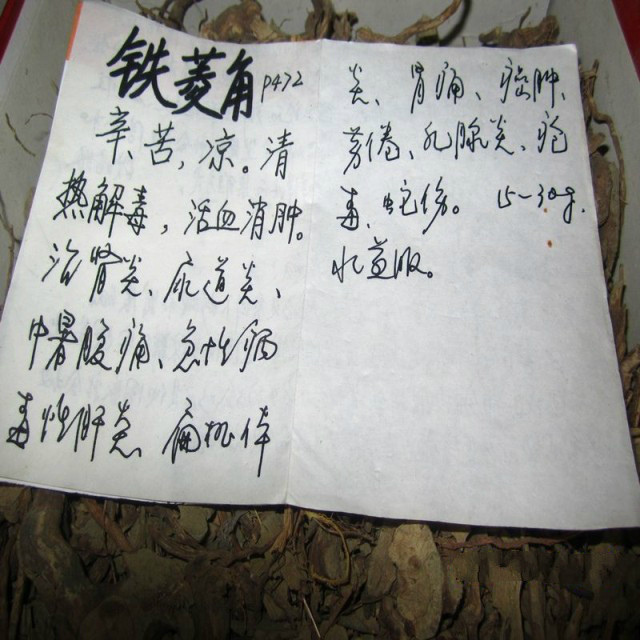 铁菱角 P472
辛、苦,凉。清
热解毒,活血消肿。
治肾炎、尿道炎、
中暑腹痛、急性病
毒性肝炎、扁桃体
炎、胃痛、癌肿、
劳倦、乳腺炎、疮
毒、蛇伤。15~30g.
水煎服。